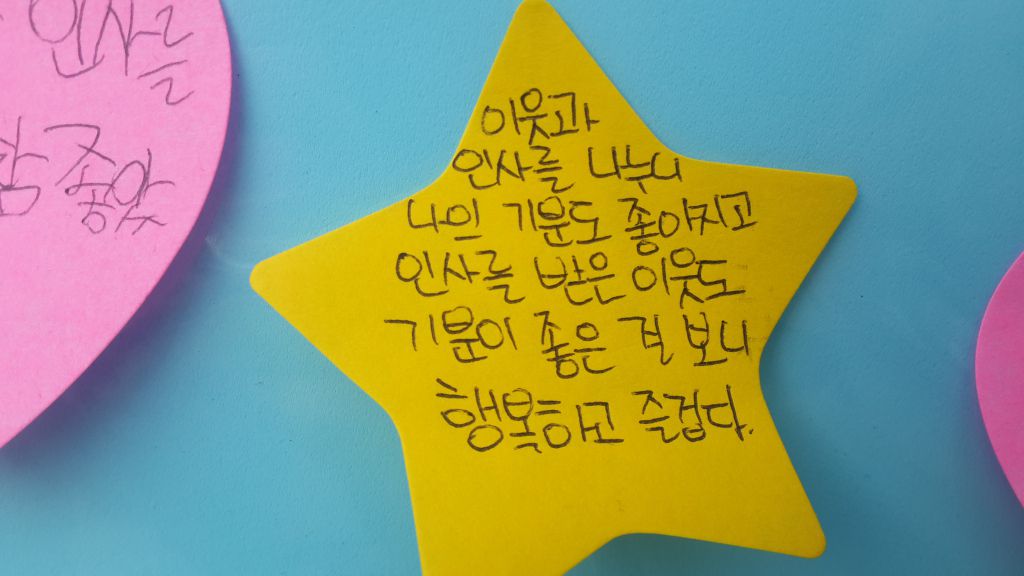 인사를
참 좋았
이웃과
인사를 나누니
나의 기분도 좋아지고
인사를 받은 이웃도
기분이 좋은 걸 보니
행복하고 즐겁다.